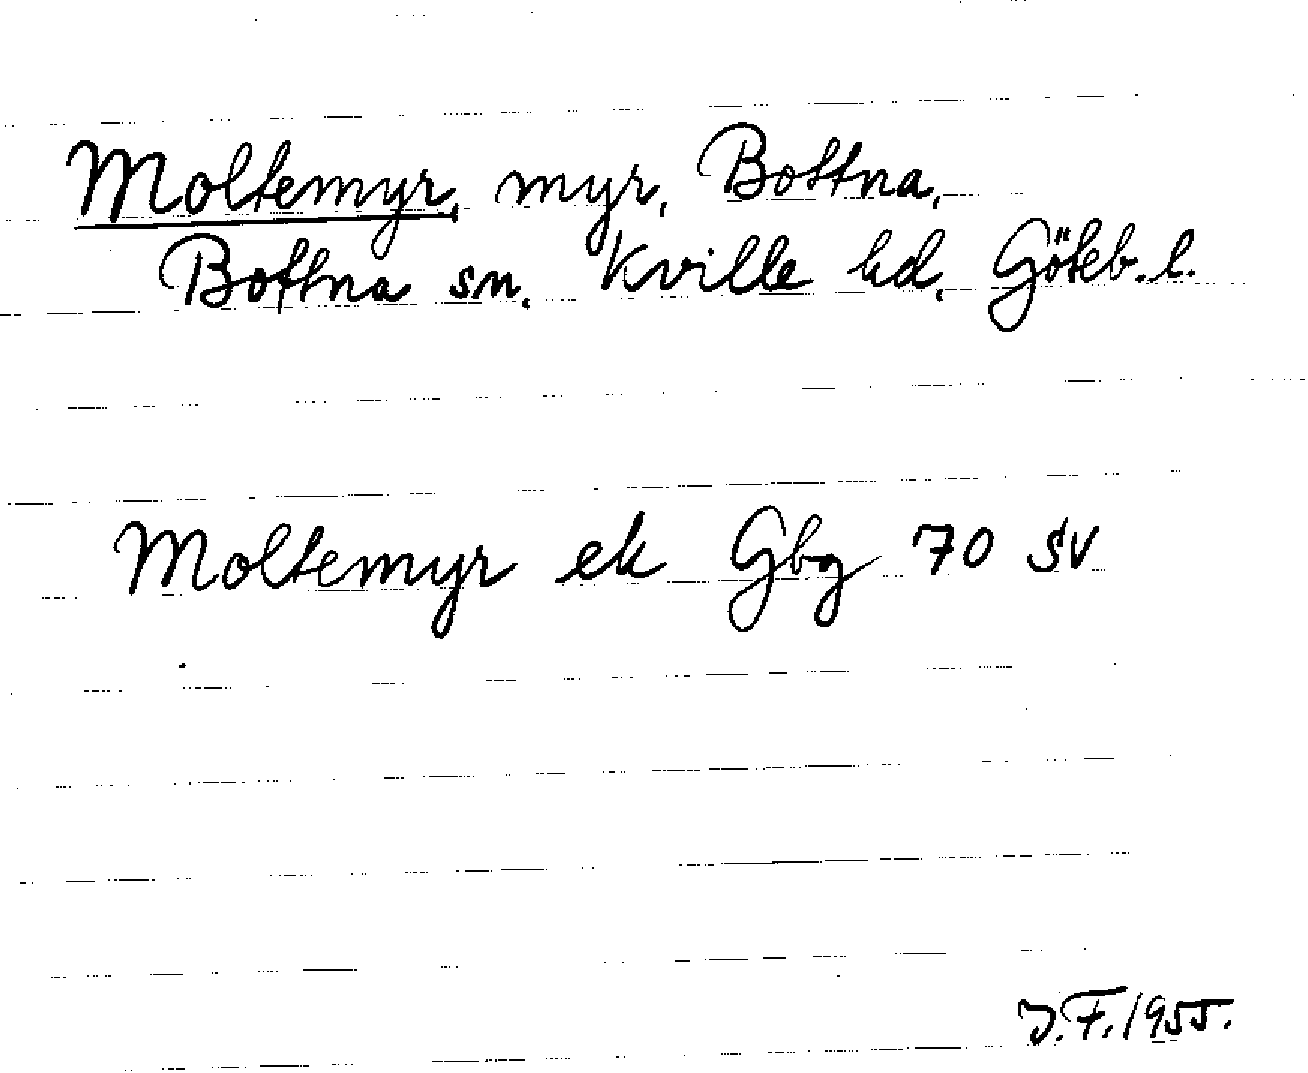 Moltemyr, myr, Bottna,
Bottna sn. Kville hd. Göteb. l.
Moltemyr ek Gbg 70 SV
J.F. 1955.